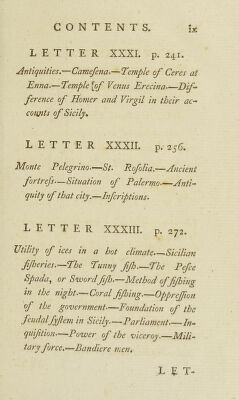 CONTENTS. ix
LETTER XXXI. p. 241.
Antiquities.—Camesena.—Temple of Ceres at
Enna.—Temple of Venus Erecina.—Dif-
ference of Homer and Virgil in their ac-
counts of Sicily.
LETTER XXXII. p. 256.
Monte Pelegrino.—St. Rosolia.—Ancient
fortress.—Situation of Palermo.—Anti-
quity of that city.—Inscriptions.
LETTER XXXIII. p. 272.
Utility of ices in a hot climate.—Sicilian
fisheries.—The Tunny fish.—The Pesce
Spada, or Sword fish.—Method of fishing
in the night.—Coral fishing.—Oppression
of the government.—Foundation of the
feudal system in Sicily.—Parliament.—In-
quisition.—Power of the viceroy.—Mili-
tary force.—Bandiere men.
LET-